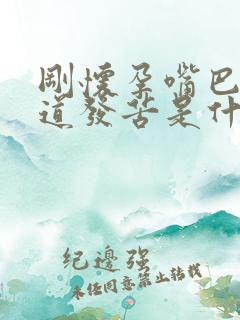 剛懷孕嘴巴
道發苦是什
紀邊強
未经同意禁止转载